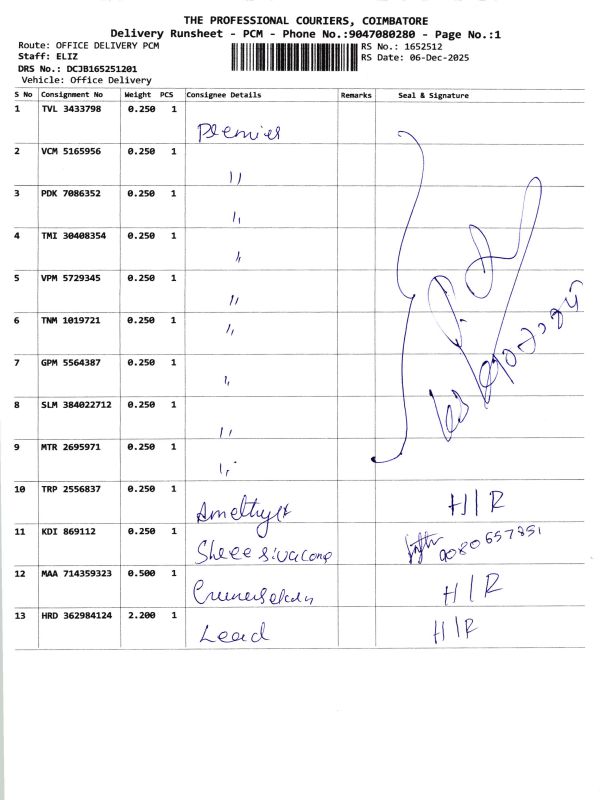 THE PROFESSIONAL COURIERS, COIMBATORE
Delivery Runsheet - PCM - Phone No.:9047080280 - Page No.:1
Route: OFFICE DELIVERY PCM
Staff: ELIZ
DRS No.: DCJB165251201
Vehicle: Office Delivery
RS No.: 1652512
RS Date: 06-Dec-2025
S No Consignment No Weight PCS Consignee Details Remarks Seal & Signature
1 TVL 3433798 0.250 1
Premier
2 VCM 5165956 0.250 1
''
3 PDK 7086352 0.250 1
''
4 TMI 30408354 0.250 1
''
5 VPM 5729345 0.250 1
''
6 TNM 1019721 0.250 1
''
7 GPM 5564387 0.250 1
''
8 SLM 384022712 0.250 1
''
9 MTR 2695971 0.250 1
''
10 TRP 2556837 0.250 1
Amethyst H/R
11 KDI 869112 0.250 1
9080657851
12 MAA 714359323 0.500 1
H/R
13 HRD 362984124 2.200 1
Lead H/R